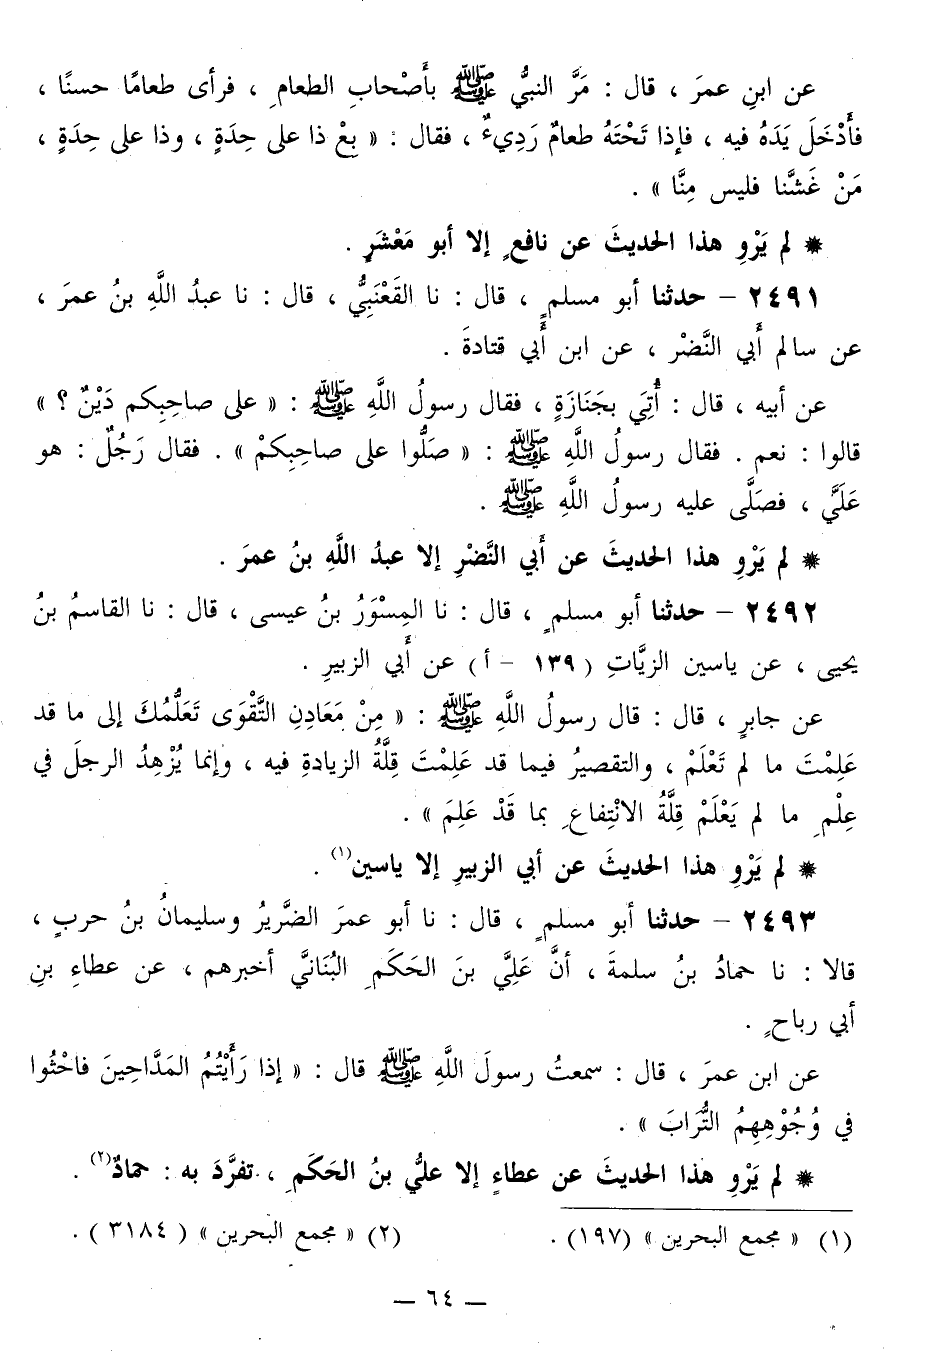 عن ابنِ عمرَ ، قال : مَرَّ النبيُّ ﷺ بأَصْحابِ الطعامِ ، فرأى طعامًا حسنًا ،
فأَدْخَلَ يَدَهُ فيه ، فإذا تَحْتَهُ طعامٌ رَدِيءٌ ، فقال : « بِعْ ذا على حِدَةٍ ، وذا على حِدَةٍ ،
مَنْ غَشَّنا فليس مِنَّا » .
* لم يَرْوِ هذا الحديثَ عن نافعٍ إلا أبو مَعْشَرٍ .
٢٤٩١ – حدثنا أبو مسلمٍ ، قال : نا القَعْنَبِيُّ ، قال : نا عبدُ اللَّهِ بنُ عمرَ ،
عن سالم أَبي النَّضْر ، عن ابن أَبي قتادةَ .
عن أبيه ، قال : أُتِيَ بجَنَازَةٍ ، فقال رسولُ اللَّهِ ﷺ : « على صاحِبِكم دَيْنٌ ؟ »
قالوا : نعم . فقال رسولُ اللَّهِ ﷺ : « صَلُّوا على صاحِبِكمْ » . فقال رَجُلٌ : هو
عَلَيَّ ، فصَلَّى عليه رسولُ اللَّهِ ﷺ .
* لم يَرْوِ هذا الحديثَ عن أَبي النَّضْرِ إلا عبدُ اللَّهِ بنُ عمرَ .
٢٤٩٢ – حدثنا أبو مسلمٍ ، قال : نا المِسْوَرُ بنُ عيسى ، قال : نا القاسمُ بنُ
يحيى ، عن ياسين الزيَّاتِ ( ١٣٩ – أ ) عن أَبي الزبيرِ .
عن جابرٍ ، قال : قال رسولُ اللَّهِ ﷺ : « مِنْ مَعَادِنِ التَّقْوَى تَعَلُّمُكَ إلى ما قد
عَلِمْتَ ما لم تَعْلَمْ ، والتقصيرُ فيما قد عَلِمْتَ قِلَّةُ الزيادةِ فيه ، وإنما يُزْهِدُ الرجلَ في
عِلْمِ ما لم يَعْلَمْ قِلَّةُ الانْتِفاعِ بما قَدْ عَلِمَ » .
* لم يَرْوِ هذا الحديثَ عن أبي الزبيرِ إلا ياسين(١) .
٢٤٩٣ – حدثنا أبو مسلمٍ ، قال : نا أبو عمرَ الضَّريرُ وسليمانُ بنُ حربٍ ،
قالا : نا حمادُ بنُ سلمةَ ، أنَّ عَلِيَّ بنَ الحَكَمِ البُنَانيَّ أخبرهم ، عن عطاءِ بنِ
أبي رباحٍ .
عن ابن عمرَ ، قال : سمعتُ رسولَ اللَّهِ ﷺ قال : « إذا رَأَيْتُمُ المَدَّاحِينَ فاحْثُوا
في وُجُوْهِهِمُ التُّرَابَ » .
* لم يَرْوِ هذا الحديثَ عن عطاءٍ إلا عليُّ بنُ الحَكَمِ ، تفرَّدَ به : حمادٌ(٢) .
(١) « مجمع البحرين » (١٩٧) . (٢) « مجمع البحرين » ( ٣١٨٤ ) .
— ٦٤ —